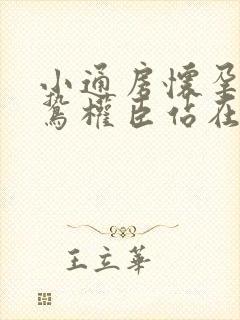 小通房懷孕
鷙權臣佔在
王立華